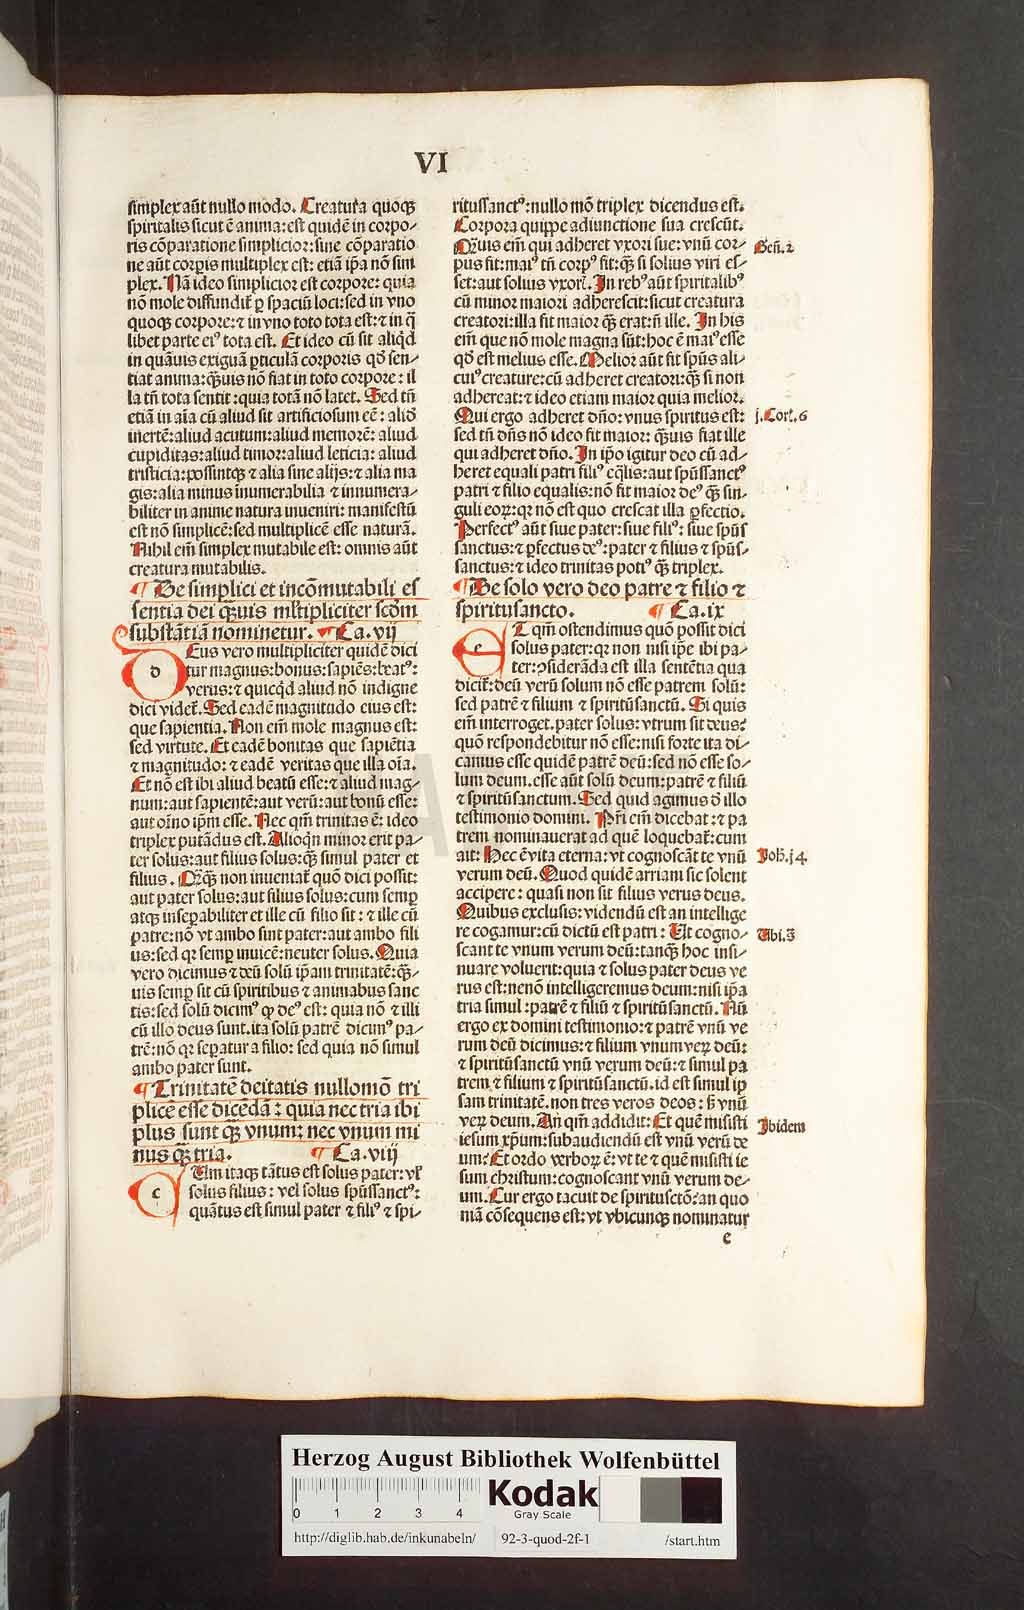 VI
simplex aūt nullo modo. Creatura quoqꝫ
spiritalis sicut ē anima: est quidē in corpo⸗
ris cōparatione simplicior: sine cōparatio
ne aūt corꝑis multiplex est: etiā ip̄a nō sim
plex. Nā ideo simplicior est corpore: quia
nō mole diffundit̄ ꝑ spaciū loci: sed in vno
quoqꝫ corpore: ⁊ in vno toto tota est: ⁊ in q̄
libet parte eiꝰ tota est. Et ideo cū fit aliqͥd
in quāuis exiguā ꝑticulā corporis qḋ sen⸗
tiat anima: qͣꝫuis nō fiat in toto corpore: il
la tn̄ tota sentit: quia totā nō latet. Sed tn̄
etiā in aīa cū aliud sit artificiosum eē: aliḋ
inertē: aliud acutum: aliud memorē: aliud
cupiditas: aliud timor: aliud leticia: aliud
tristicia: possintqꝫ ⁊ alia sine alijs: ⁊ alia ma
gis: alia minus inumerabilia ⁊ innumera⸗
biliter in anime natura inueniri: manifestū
est nō simplicē: sed multiplicē esse naturā.
Nihil em̄ simplex mutabile est: omnis aūt
creatura mutabilis.
¶ De simplici et incōmutabili es
sentia dei qͣꝫuis ml̄tipliciter scḋm
substātiā nominetur. ¶ Ca. vij
dEus vero multipliciter quidē dici
tur magnus: bonus: sapiēs: beatꝰ:
verus: ⁊ quicqͥd aliud nō indigne
dici videt̄. Sed eadē magnitudo eius est:
que sapientia. Non em̄ mole magnus est:
sed virtute. Et eadē bonitas que sapiētia
⁊ magnitudo: ⁊ eadē veritas que illa oīa.
Et nō est ibi aliud beatū esse: ⁊ aliud mag⸗
num: aut sapientē: aut verū: aut bonū esse:
aut oīno ip̄m esse. Nec qm̄ trinitas ē: ideo
triplex putādus est. Alioqͥn minor erit pa⸗
ter solus: aut filius solus: qͣꝫ simul pater et
filius. Qͣꝫqͣꝫ non inueniat̄ quō dici possit:
aut pater solus: aut filius solus: cum semꝑ
atqꝫ inseꝑabiliter et ille cū filio sit: ⁊ ille cū
patre: nō vt ambo sint pater: aut ambo fili
us: sed qꝛ semꝑ inuicē: neuter solus. Quia
vero dicimus ⁊ deū solū ip̄am trinitatē: qͣꝫ⸗
uis semꝑ sit cū spiritibus ⁊ animabus sanc
tis: sed solū dicimꝰ qꝫ deꝰ est: quia nō ⁊ illi
cū illo deus sunt. ita solū patrē dicimꝰ pa⸗
trē: nō qꝛ seꝑatur a filio: sed quia nō simul
ambo pater sunt.
¶ Trinitatē deitatis nullomō tri
plicē esse dicēdā: quia nec tria ibi
plus sunt qͣꝫ vnum: nec vnum mi
nus qͣꝫ tria. ¶ Ca. viij
cUm itaqꝫ tātus est solus pater: vl̓
solus filius: vel solus spūssanctꝰ:
quātus est simul pater ⁊ filiꝰ ⁊ spi⸗
ritussanctꝰ: nullo mō triplex dicendus est.
Corpora quippe adiunctione sua crescūt.
Qͣꝫuis em̄ qui adheret vxori sue: vnū cor⸗
pus fit: maiꝰ tn̄ corpꝰ fit: qͣꝫ si solius viri es⸗
set: aut solius vxor̄. In rebꝰ aūt spiritalibꝰ
cū minor maiori adherescit: sicut creatura
creatori: illa fit maior qͣꝫ erat: n̄ ille. In his
em̄ que nō mole magna sūt: hoc ē maiꝰ esse
qḋ est melius esse. Melior aūt fit spūs ali⸗
cuiꝰ creature: cū adheret creatori: qͣꝫ si non
adhereat: ⁊ ideo etiam maior quia melior.
Qui ergo adheret dn̄o: vnus spiritus est:
sed tn̄ dn̄s nō ideo fit maior: qͣꝫuis fiat ille
qui adheret dn̄o. In ip̄o igitur deo cū ad⸗
heret equali patri filiꝰ eq̄lis: aut spūssanctꝰ
patri ⁊ filio equalis: nō fit maior deꝰ qͣꝫ sin⸗
guli eoꝝ: qꝛ nō est quo crescat illa ꝑfectio.
Perfectꝰ aūt siue pater: siue filiꝰ: siue spūs
sanctus: ⁊ ꝑfectus deꝰ: pater ⁊ filius ⁊ spūs⸗
sanctus: ⁊ ideo trinitas potiꝰ qͣꝫ triplex.
¶ De solo vero deo patre ⁊ filio ⁊
spiritusancto. ¶ Ca. ix
eT qm̄ ostendimus quō possit dici
solus pater: qꝛ non nisi ip̄e ibi pa⸗
ter: ꝯsiderāda est illa sentētia qua
dicit̄: deū verū solum nō esse patrem solū:
sed patrē ⁊ filium ⁊ spiritūsanctū. Si quis
em̄ interroget. pater solus: vtrum sit deus:
quō respondebitur nō esse: nisi forte ita di⸗
camus esse quidē patrē deū: sed nō esse so⸗
lum deum. esse aūt solū deum: patrē ⁊ filiū
⁊ spiritūsanctum. Sed quid agimus ḋ illo
testimonio domini. Pr̄i em̄ dicebat: ⁊ pa
trem nominauerat ad quē loquebat̄: cum
ait: Hec ē vita eterna: vt cognoscāt te vnū
verum deū. Quod quidē arriani sic solent
accipere: quasi non sit filius verus deus.
Quibus exclusis: videndū est an intellige
re cogamur: cū dictū est patri: Ut cogno⸗
scant te vnum verum deū: tanqͣꝫ hoc insi⸗
nuare voluerit: quia ⁊ solus pater deus ve
rus est: ne nō intelligeremus deum: nisi ip̄a
tria simul: patrē ⁊ filiū ⁊ spiritūsanctū. Nū
ergo ex domini testimonio: ⁊ patrē vnū ve
rum deū dicimus: ⁊ filium vnum veꝝ deū:
⁊ spiritūsanctū vnū verum deū: ⁊ simul pa
trem ⁊ filium ⁊ spiritūsanctū. id est simul ip̄
sam trinitatē. non tres veros deos: sꝫ vnū
veꝝ deum. An qm̄ addidit: Et quē misisti
iesum xp̄um: subaudiendū est vnū verū de
um: Et ordo verboꝝ ē: vt te ⁊ quē misisti ie
sum christum: cognoscant vnū verum de⸗
um. Cur ergo tacuit de spiritusctō: an quo
niā cōsequens est: vt vbicunqꝫ nominatur
e
Geñ. 2
j. Cor̄. 6
Joh̄. j4.
Ibidem
Herzog August Bibliothek Wolfenbüttel
0 1 2 3 4
Kodak
Gray Scale
http://diglib.hab.de/inkunabeln/ 92-3-quod-2f-1 /start.htm